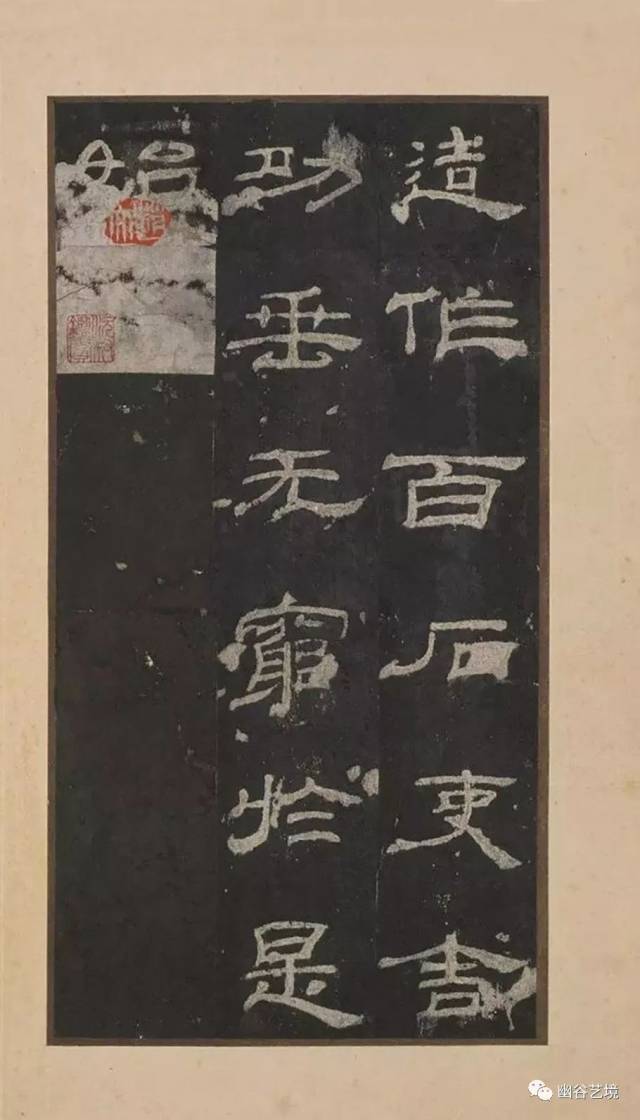 造作百石吏舍
功垂无窮於是
始
幽谷艺境